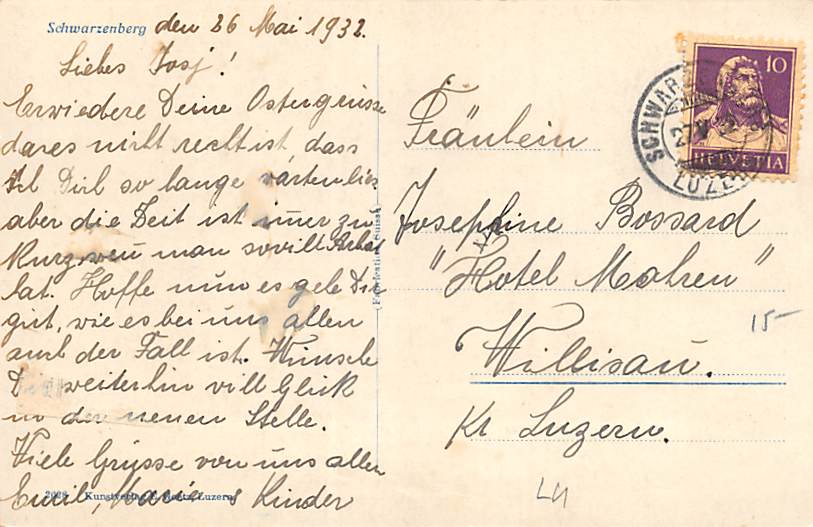 Schwarzenberg den 26 Mai 1932.
Liebes Josj!
Erwiedere Deine Ostergrüsse
dares nicht recht ist, dass
Ich Dich so lange warten lies
aber die Zeit ist imer zu
Kurz, wen man sovill Arbeit
hat. Hoffe nun es gehe Dir
gut, wie es bei uns allen
auch der Fall ist. Wünsche
Dir weiterhin vill Glük
in der neuen Stelle.
Viele Grüsse von uns allen
Emil, Maria u Kinder
2028 Kunstverlag E. Goetz, Luzern
Fabrication Suisse
10
HELVETIA
SCHWARZENBERG
27.V.32
LUZERN
Fräulein
Josephine Bossard
"Hotel Mohren"
Willisau.
Kt Luzern.
15-
LU